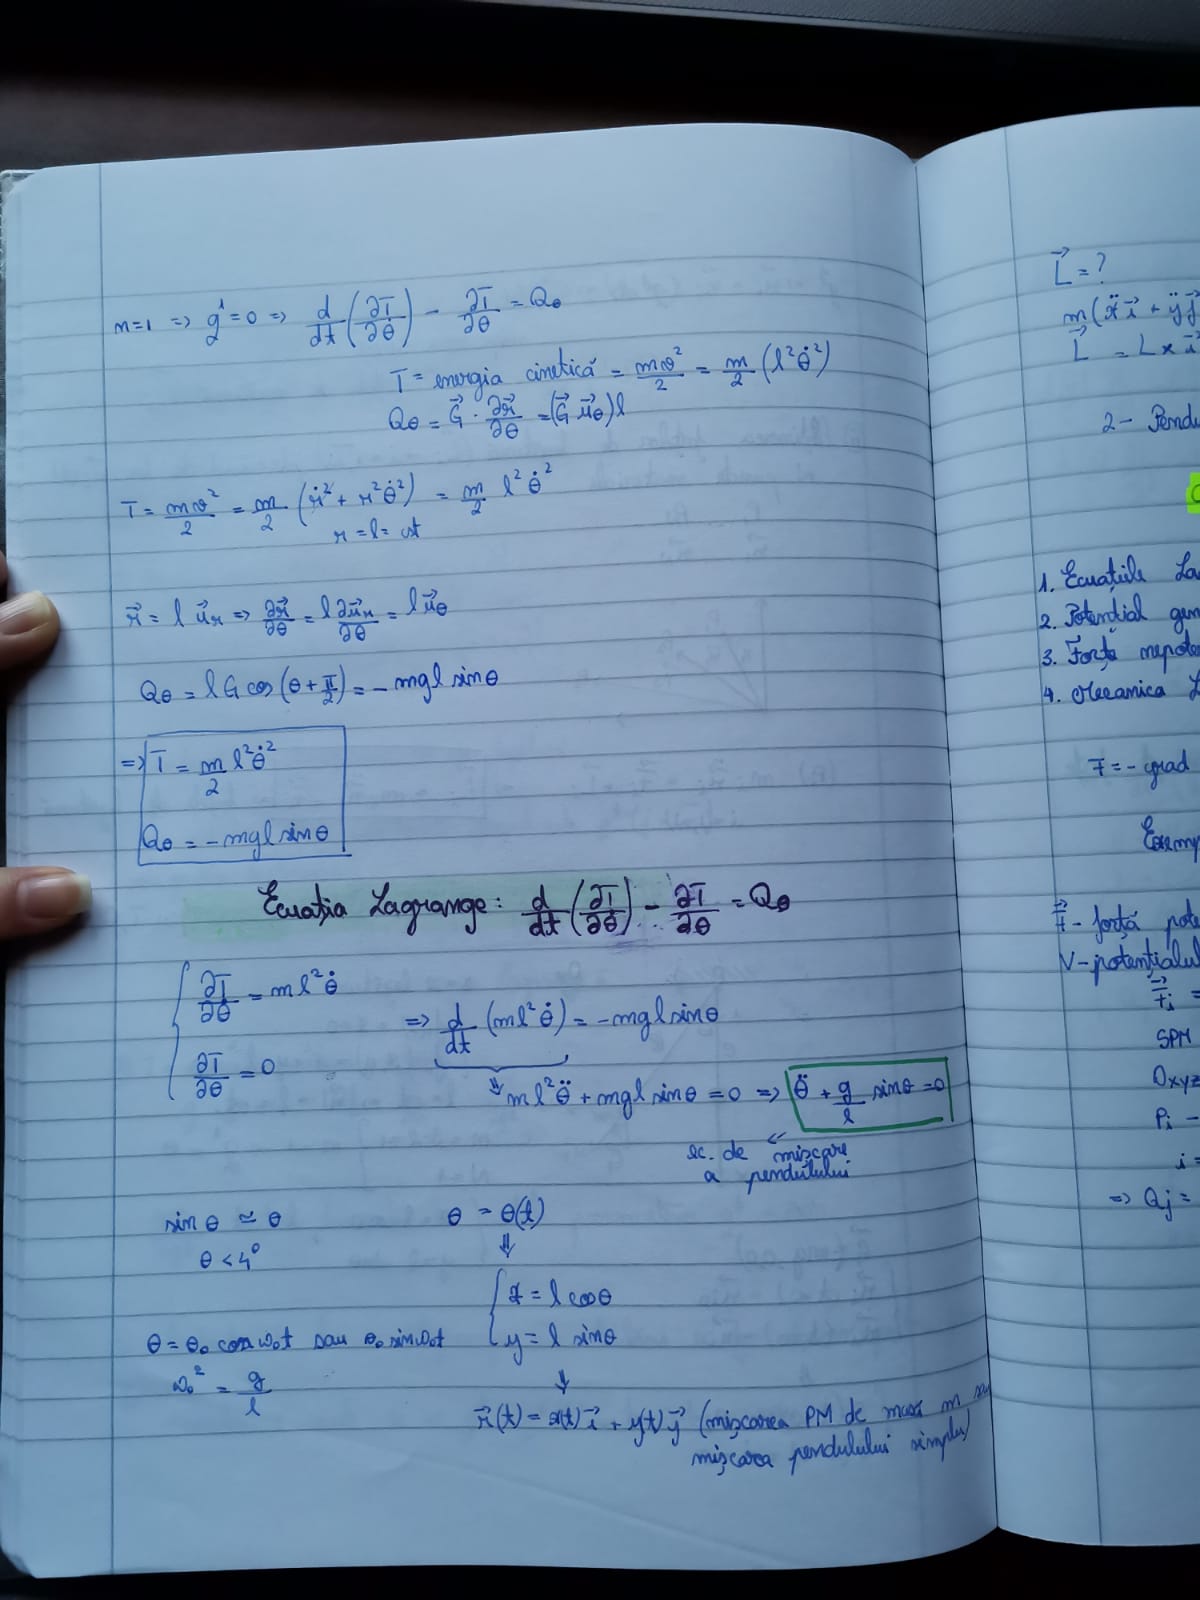 m=1 => q¹=0 => d/dt (∂T/∂θ̇) - ∂T/∂θ = Qθ
T = energia cinetică = mv²/2 = m/2 (l²θ̇²)
Qθ = G⃗ · ∂r⃗/∂θ = (G⃗ u⃗θ) l
T = mv²/2 = m/2 (ṙ² + r²θ̇²) = m/2 l²θ̇²
r = l = ct
r⃗ = l u⃗r => ∂r⃗/∂θ = l ∂u⃗r/∂θ = l u⃗θ
Qθ = l G cos (θ + π/2) = - mgl sin θ
=> T = m/2 l²θ̇²
Qθ = - mgl sin θ
Ecuația Lagrange: d/dt (∂T/∂θ̇) - ∂T/∂θ = Qθ
∂T/∂θ̇ = ml²θ̇
=> d/dt (ml²θ̇) = -mgl sin θ
∂T/∂θ = 0
⇓ ml²θ̈ + mgl sin θ = 0 => θ̈ + g/l sin θ = 0
ec. de mișcare
a pendulului
sin θ ≃ θ
θ < 4°
θ = θ(t)
⇓
x = l cos θ
y = l sin θ
θ = θ₀ cos ω₀t sau θ₀ sin ω₀t
ω₀² = g/l
⇓
r⃗(t) = x(t) i⃗ + y(t) j⃗ (mișcarea PM de masă m
mișcarea pendulului simplu)
L⃗ = ?
m(ẍ i⃗ + ÿ j⃗
L⃗ = Lx i⃗
2 - Pendu
1. Ecuațiile La
2. Potențial gen
3. Forță nepote
4. Mecanica L
F = - grad
Exemp
F⃗ - forță pote
V - potențialul
F⃗i =
SPM
Oxyz
Pi -
i =
=> Qj =